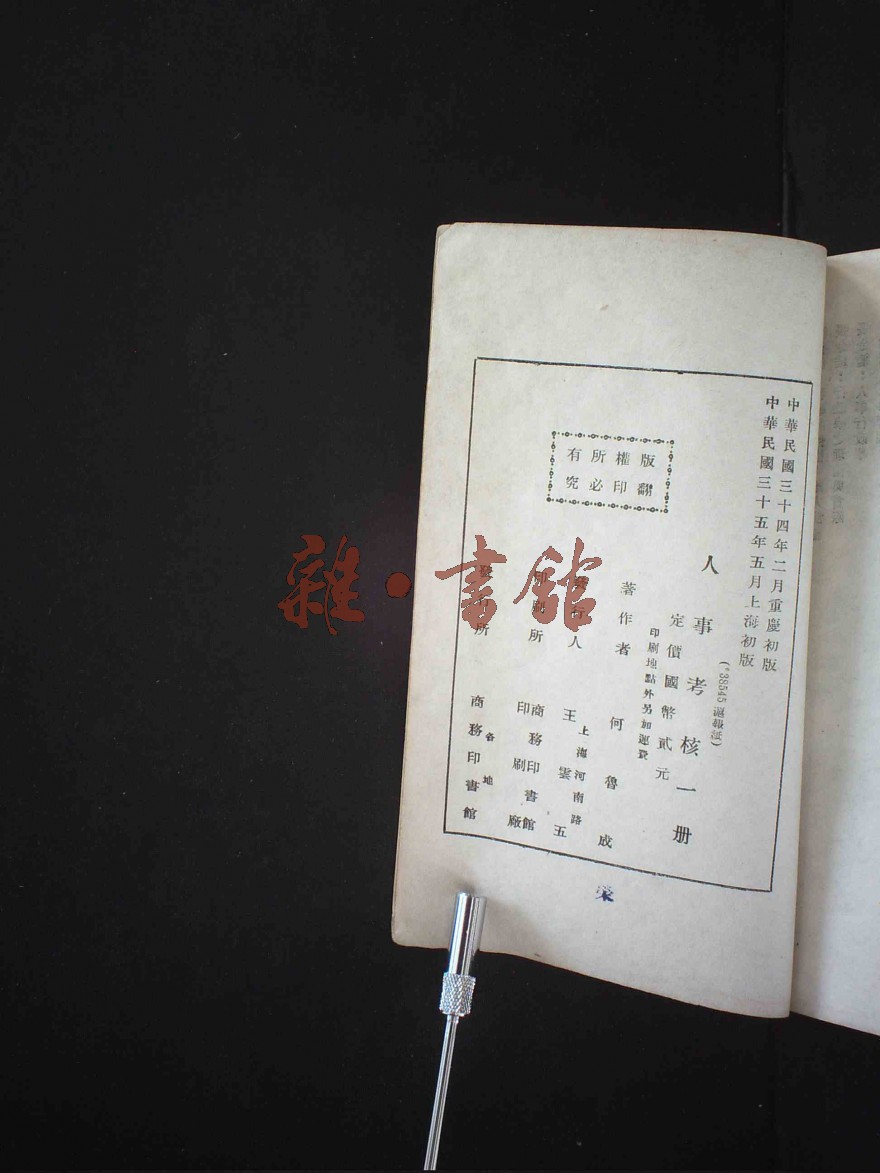 中華民國三十四年二月重慶初版
中華民國三十五年五月上海初版
(*38545 滬報紙)
人事考核一册
定價國幣貳元
印刷地點外另加運費
著作者 何魯成
發行人 王雲五
上海河南路
印刷所 商務印書館
印刷廠
發行所 商務印書館
各地
版權所有
翻印必究
榮
雜·書館